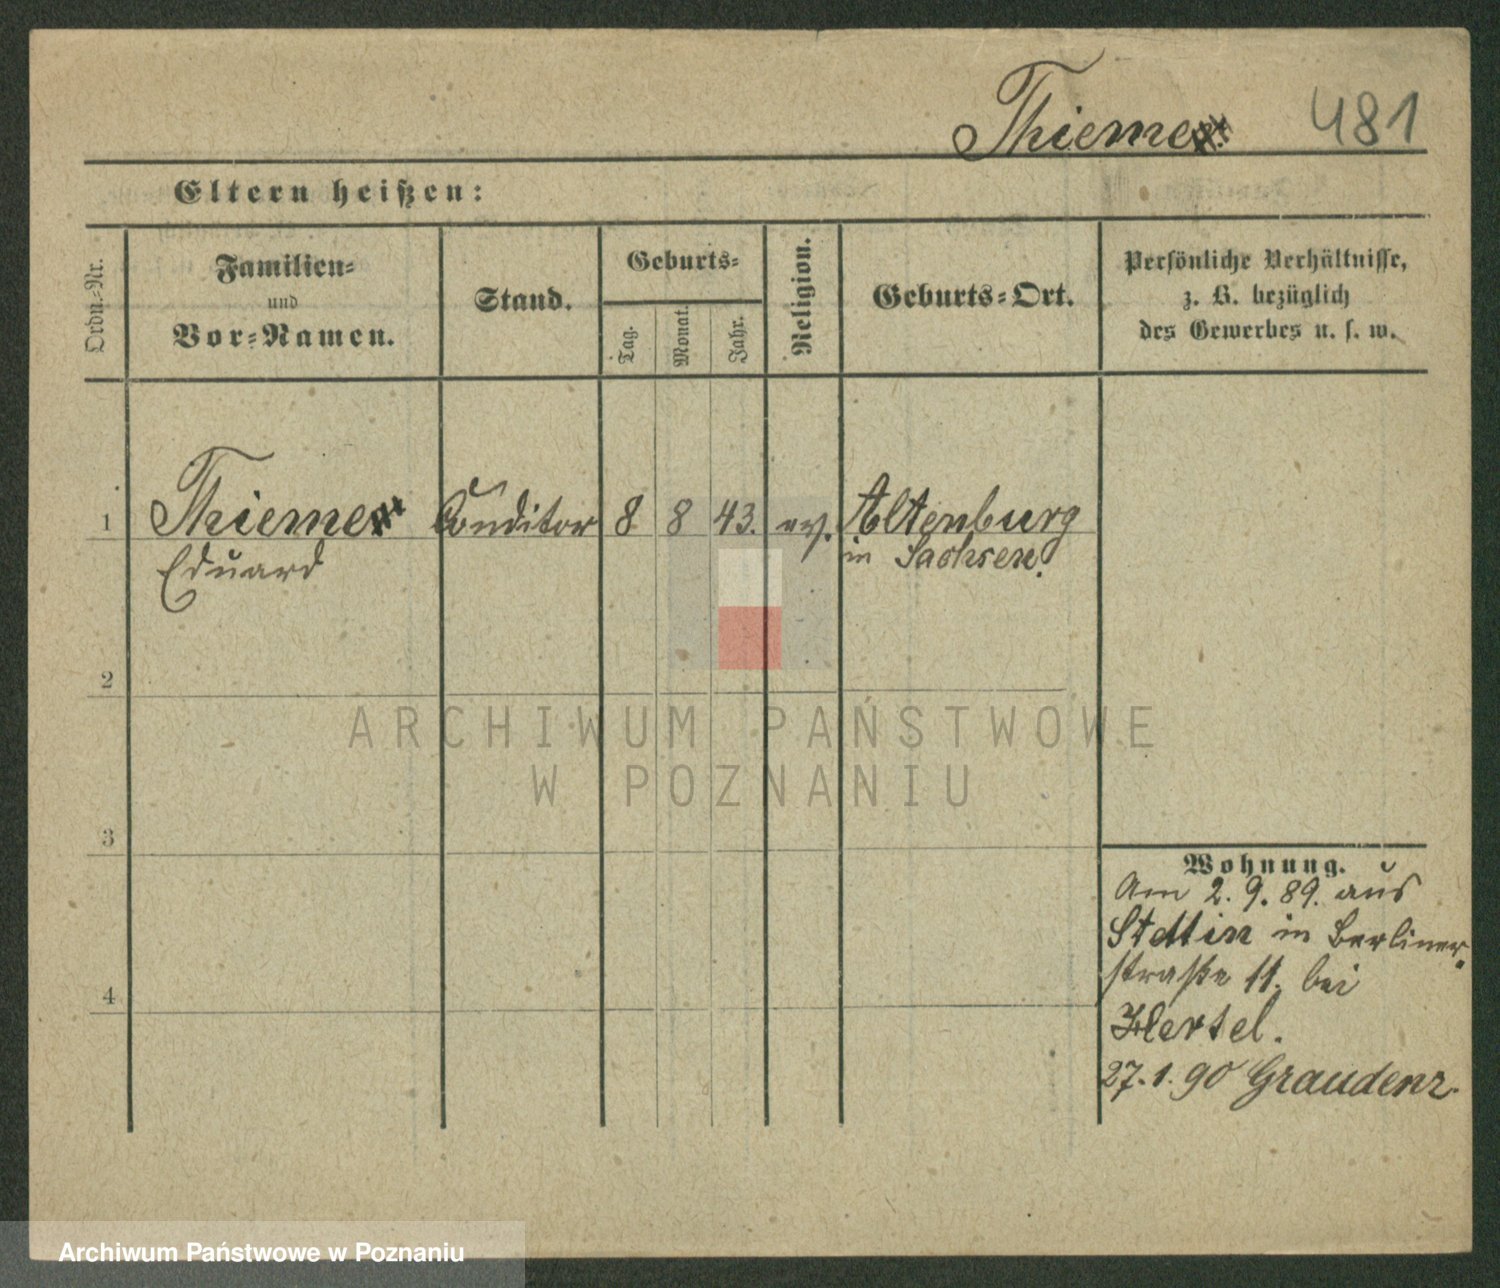 Thieme 481
Eltern heißen:
Ordn.-Nr.
Familien-
und
Vor-Namen.
Stand.
Geburts-
Tag.
Monat.
Jahr.
Religion.
Geburts-Ort.
Persönliche Verhältnisse,
z. B. bezüglich
des Gewerbes u. s. w.
1 Thieme Conditor 8 8 43. ev. Altenburg
Eduard in Sachsen.
2
ARCHIWUM PAŃSTWOWE
W POZNANIU
3
Wohnung.
Am 2. 9. 89. aus
Stettin in Berliner-
straße 11. bei
4
Hertel.
27. 1. 90 Graudenz.
Archiwum Państwowe w Poznaniu